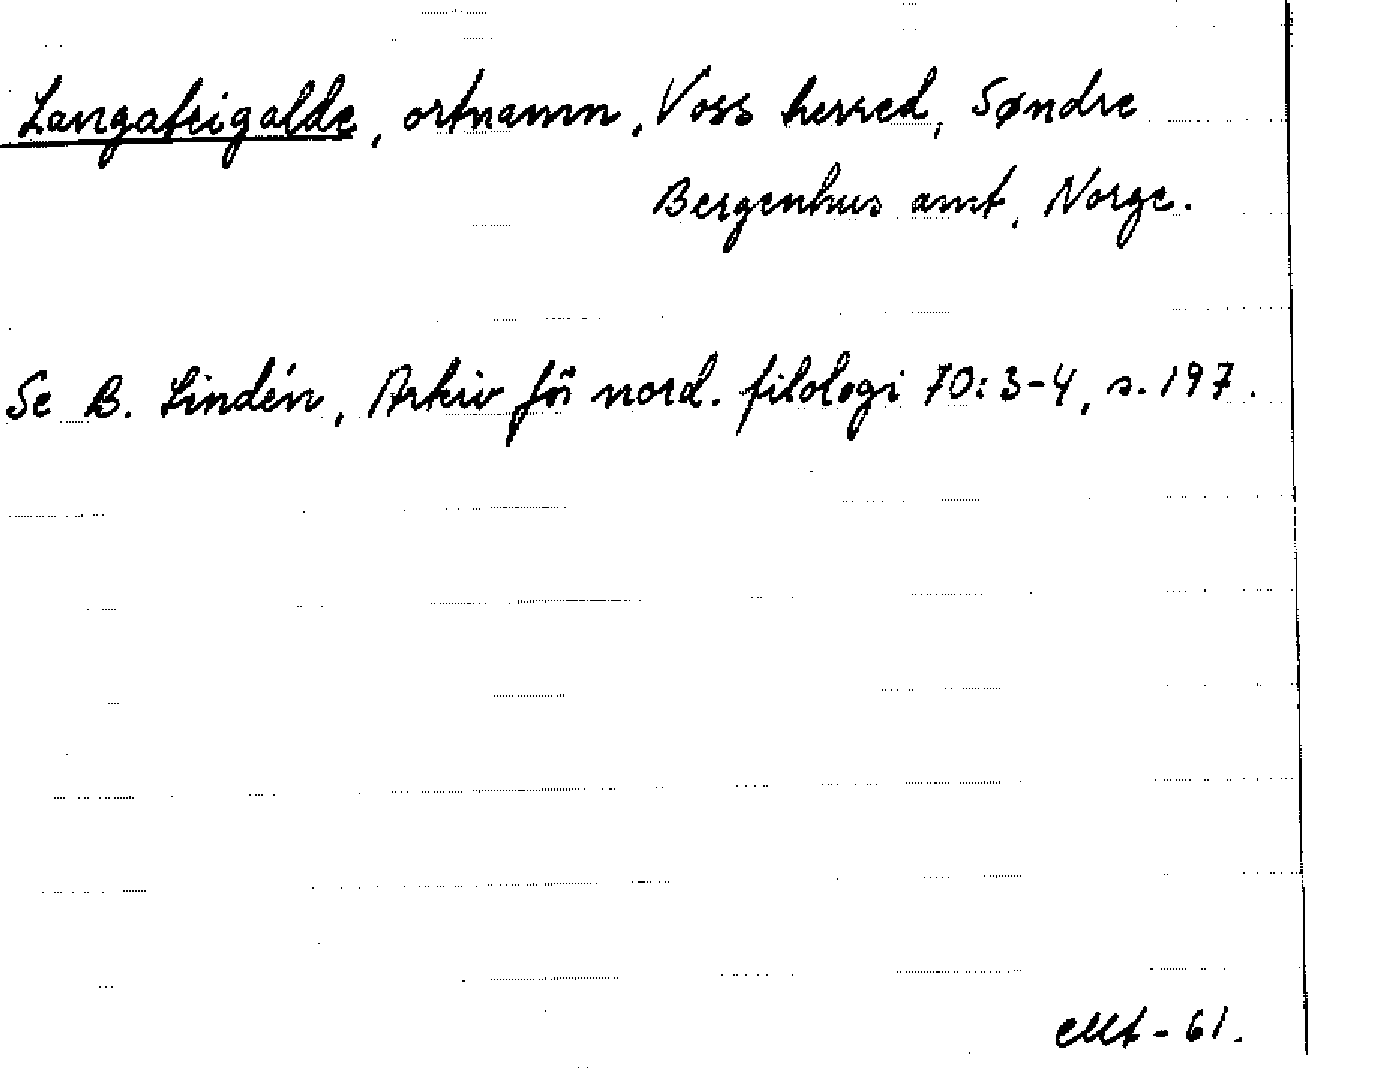 Langafeigalde, ortnamn, Voss herred, Søndre
Bergenhus amt, Norge.
Se B. Lindén, Arkiv för nord. filologi 70:3-4, s. 197.
-61.